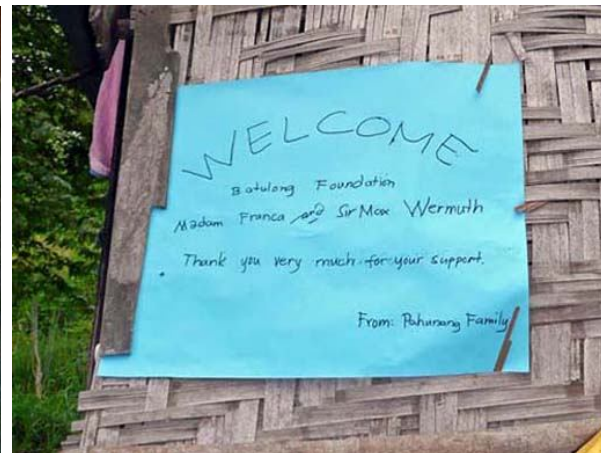 WELCOME
Batulong Foundation
Madam Franca and Sir Max Wermuth
Thank you very much for your support.
From: Pahunang Family